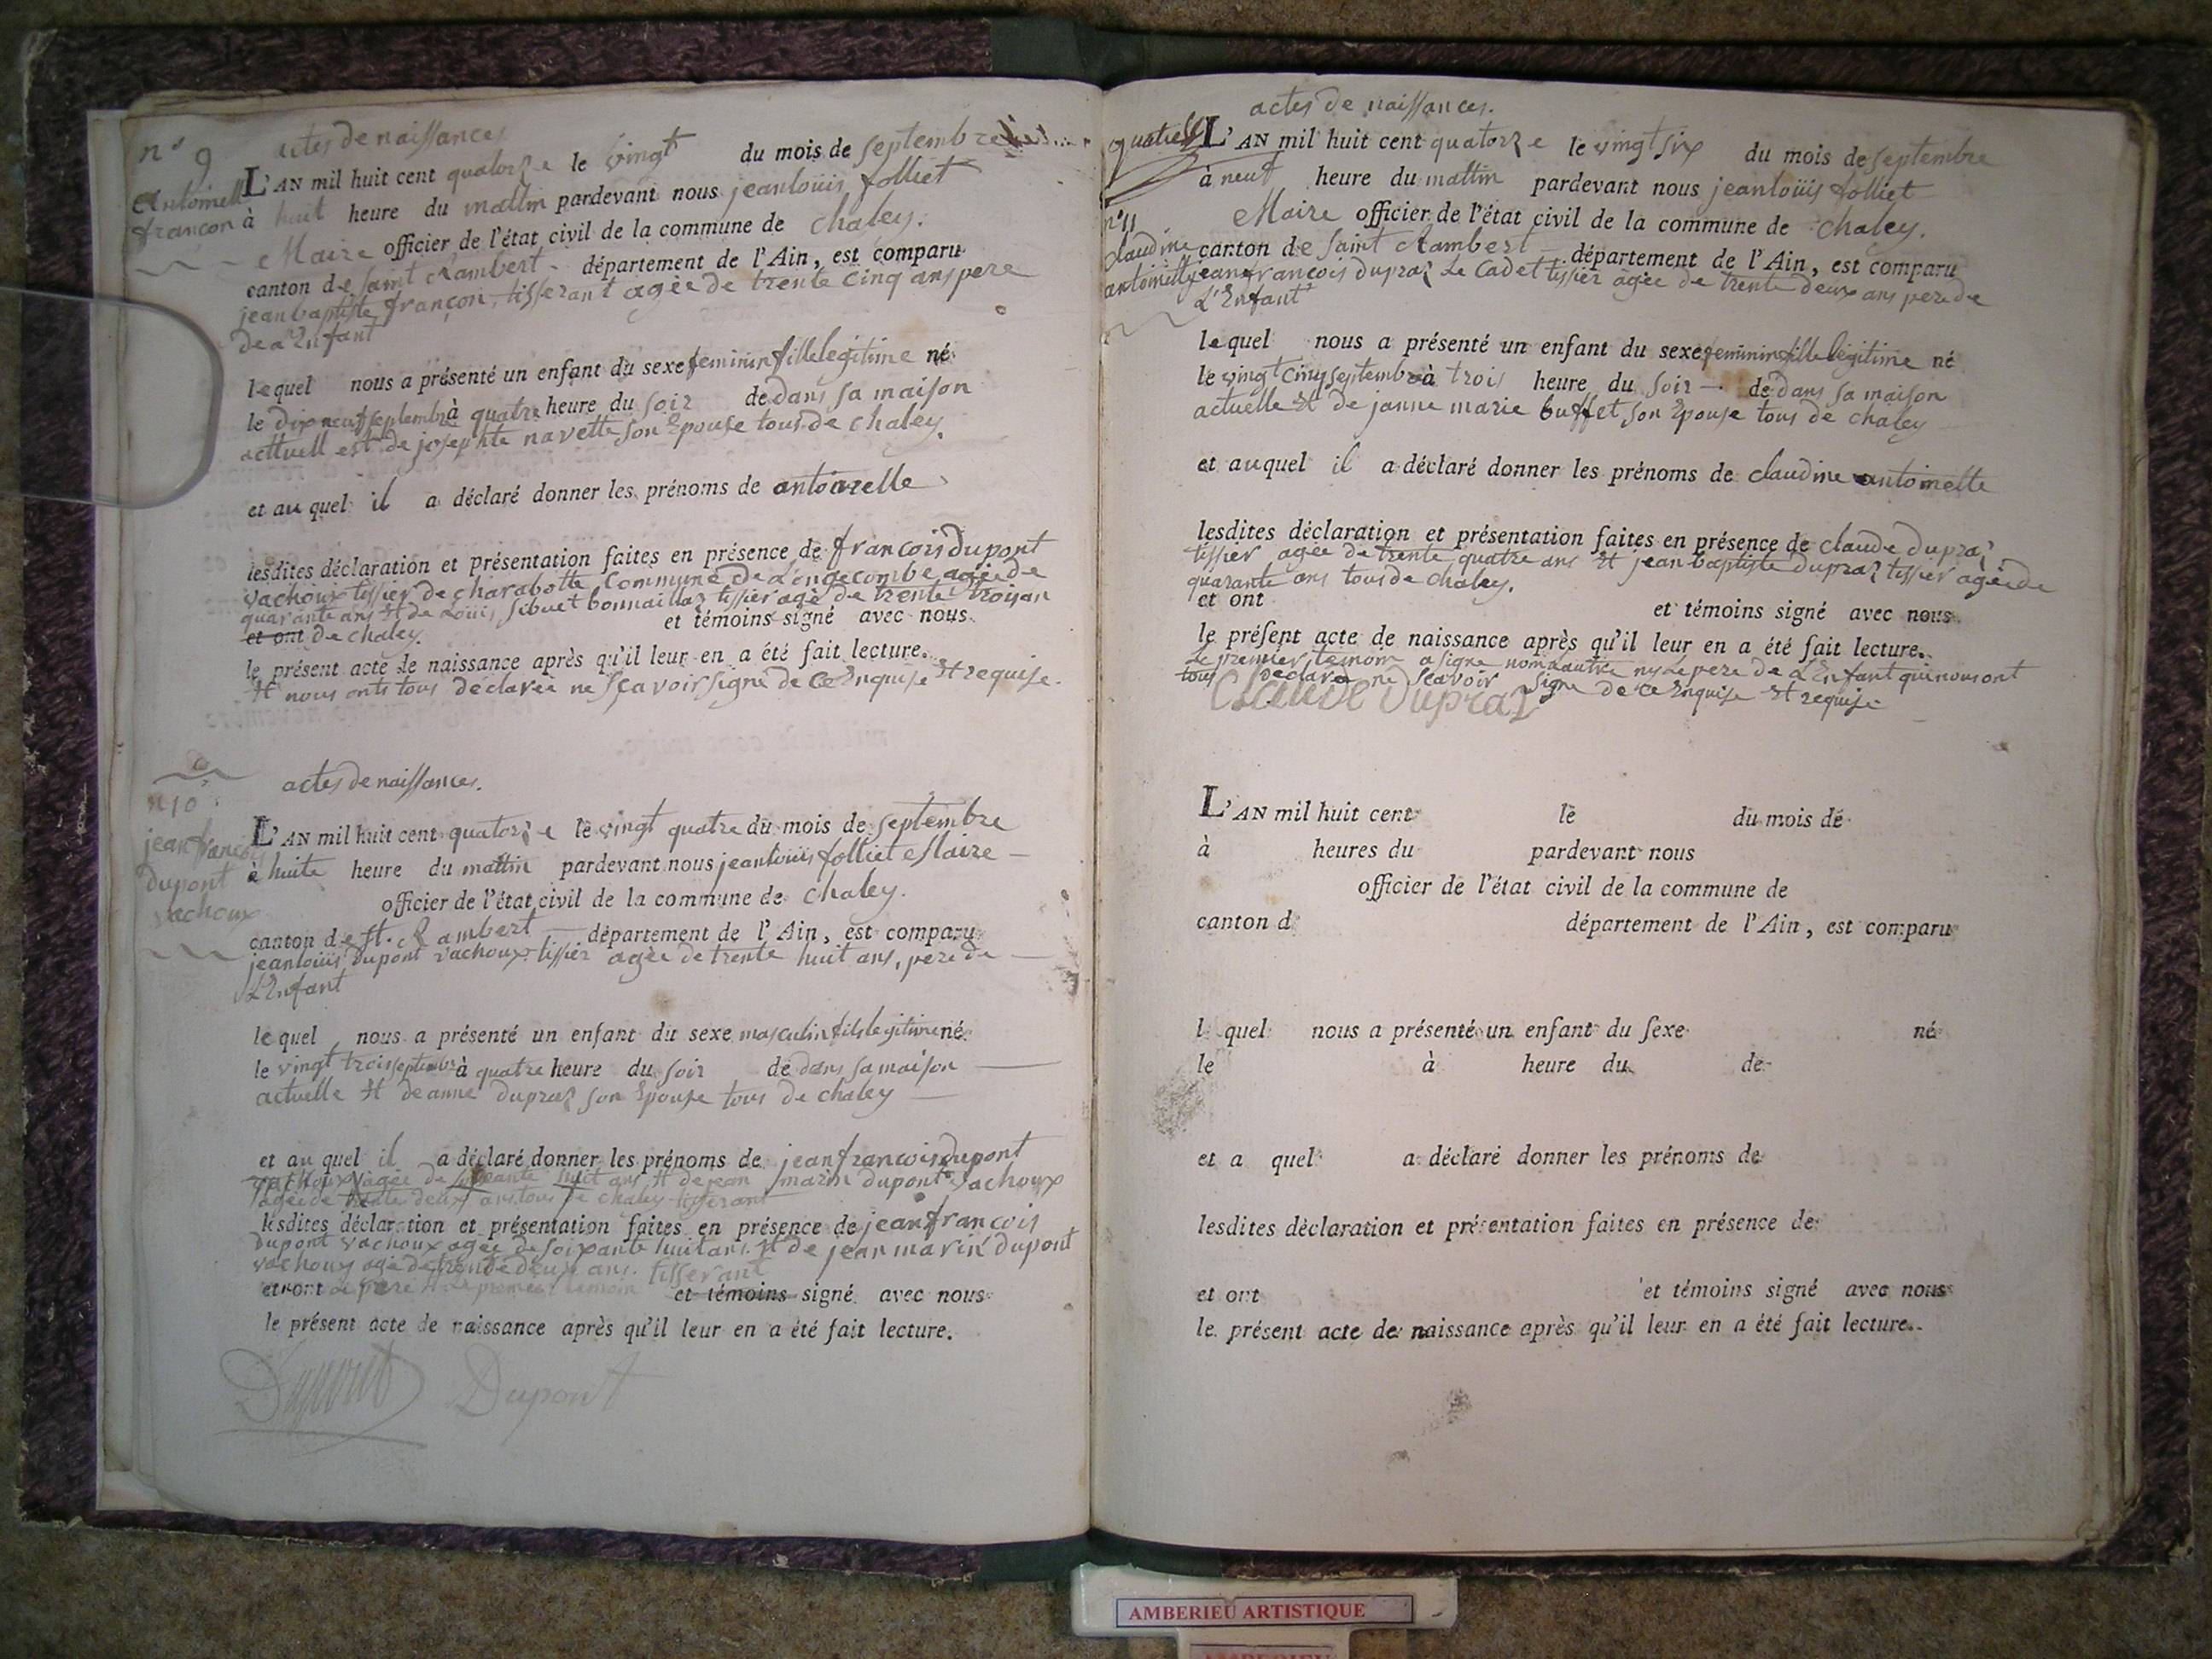 n° 9
actes de naissances
Antoinette
françon
L'AN mil huit cent quatorze le vingt du mois de septembre
à huit heure du mattin pardevant nous jeanloüis folliet
Maire officier de l'état civil de la commune de chaley.
canton de saint Rambert - département de l'Ain, est comparu
jean baptiste françon, tisserant agèe de trente cinq ans pere
de l'Enfant
lequel nous a présenté un enfant du sexe feminin fille legitime né
le dix neuf septembre à quatre heure du soir de dans sa maison
acttuell est de josephte navette son Epouse tous de chaley.
et au quel il a déclaré donner les prénoms de antoinette
lesdites déclaration et présentation faites en présence de francois Dupont
vachoux tissier de charabotte commune de Longecombe agèe de
quarante ans et de Loüis sibuet bonnaillaz tissier agè de trente trois an
et ont de chaley. et témoins signé avec nous
le présent acte de naissance après qu'il leur en a été fait lecture.
Et nous onts tous déclarèe ne sçavoir signé de ce Enquise Et requise.
n 10
actes de naissances.
jean francois
Dupont
vachoux
L'AN mil huit cent quatorze le vingt quatre du mois de septembre
à huite heure du mattin pardevant nous jeanloüis folliet Maire -
officier de l'état civil de la commune de chaley.
canton de st. Rambert - département de l'Ain, est comparu
jeanloüis Dupont vachoux tissier agèe de trente huit ans, pere de -
L'Enfant
lequel nous a présenté un enfant du sexe masculin fils legitime né
le vingt trois septembre à quatre heure du soir de dans sa maison
actuelle Et de anne Dupraz son Epouse tous de chaley
et au quel il a déclaré donner les prénoms de jean francois dupont
vachoux agèe de soixante huit ans Et de jean marin dupont vachoux
agèe de trente deux ans tous de chaley tisserant
lesdites déclaration et présentation faites en présence de jean francois
Dupont vachoux agèe de soixante huit ans Et de jean marin dupont
vachoux agè de trente deux ans. tisserant
et ont le pere Et le premier temoin et témoins signé avec nous
le présent acte de naissance après qu'il leur en a été fait lecture.
Dupont Dupont
actes de naissances.
n° 11
claudine
antoinette
L'AN mil huit cent quatorze le vingt six du mois de septembre
à neuf heure du mattin pardevant nous jeanloüis folliet
Maire officier de l'état civil de la commune de chaley.
canton de saint Rambert - département de l'Ain, est comparu
jean francois dupraz Le Cadet tissier agèe de trente deux ans pere de
L'Enfant
lequel nous a présenté un enfant du sexe feminin fille légitime né
le vingt cinq septembre à trois heure du soir - de dans sa maison
actuelle Et de janne marie buffet son Epouse tous de chaley
et auquel il a déclaré donner les prénoms de claudine antoinette
lesdites déclaration et présentation faites en présence de claude dupraz
tissier agèe de trente quatre ans Et jean baptiste dupraz tissier agèe de
quarante ans tous de chaley.
et ont et témoins signé avec nous
le présent acte de naissance après qu'il leur en a été fait lecture.
Le premier temoin a signe non Lautre ny Le pere de L'Enfant qui nous ont
tous déclaré ne scavoir signe de ce Enquise Et requise
Claude Dupraz
L'AN mil huit cent le du mois de
à heures du pardevant nous
officier de l'état civil de la commune de
canton d département de l'Ain, est comparu
l quel nous a présenté un enfant du sexe né
le à heure du de
et a quel a déclaré donner les prénoms de
lesdites déclaration et présentation faites en présence de
et ont et témoins signé avec nous
le présent acte de naissance après qu'il leur en a été fait lecture.
AMBERIEU ARTISTIQUE
AMBERIEU